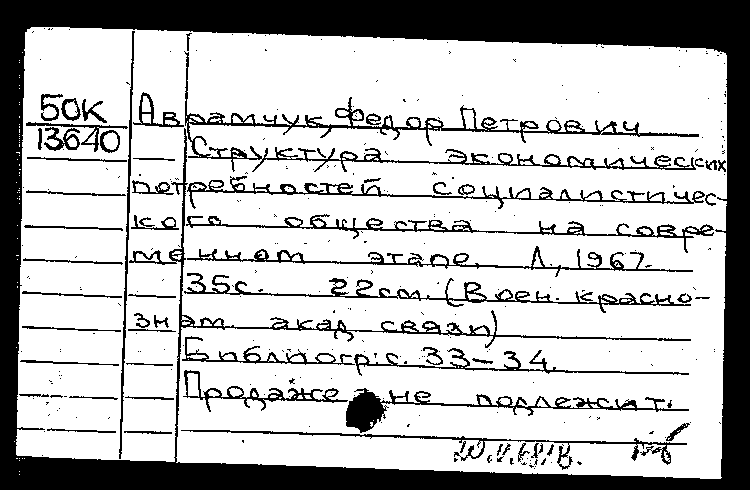 50К Аврамчук, Федор Петрович
13640 Структура экономических
потребностей социалистичес-
кого общества на совре-
менном этапе. Л., 1967.
35с. 22см. (Воен. красно-
знам. акад. связи)
Библиогр: с. 33-34.
Продаже не подлежит.
20.V.68